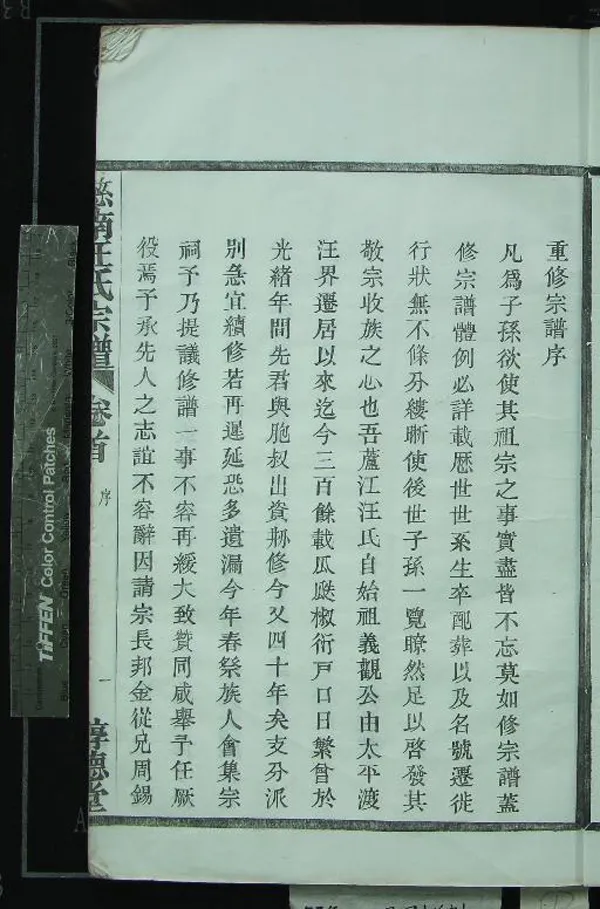 重修宗譜序
凡爲子孫欲使其祖宗之事實盡皆不忘莫如修宗譜蓋
修宗譜體例必詳載歷世世系生卒配葬以及名號遷徙
行狀無不條分縷晰使後世子孫一覽瞭然足以啓發其
敬宗收族之心也吾蘆江汪氏自始祖義觀公由太平渡
汪界遷居以來迄今三百餘載瓜瓞椒衍戸口日繁曾於
光緒年間先君與胞叔出資剙修今又四十年矣支分派
別急宜續修若再遲延恐多遺漏今年春祭族人會集宗
祠予乃提議修譜一事不容再緩大致贊同咸舉予任厥
役焉予承先人之志誼不容辭因請宗長邦金從兄周錫
慈南汪氏宗譜 卷首 序 一 淳德堂
TIFFEN Color Control Patches